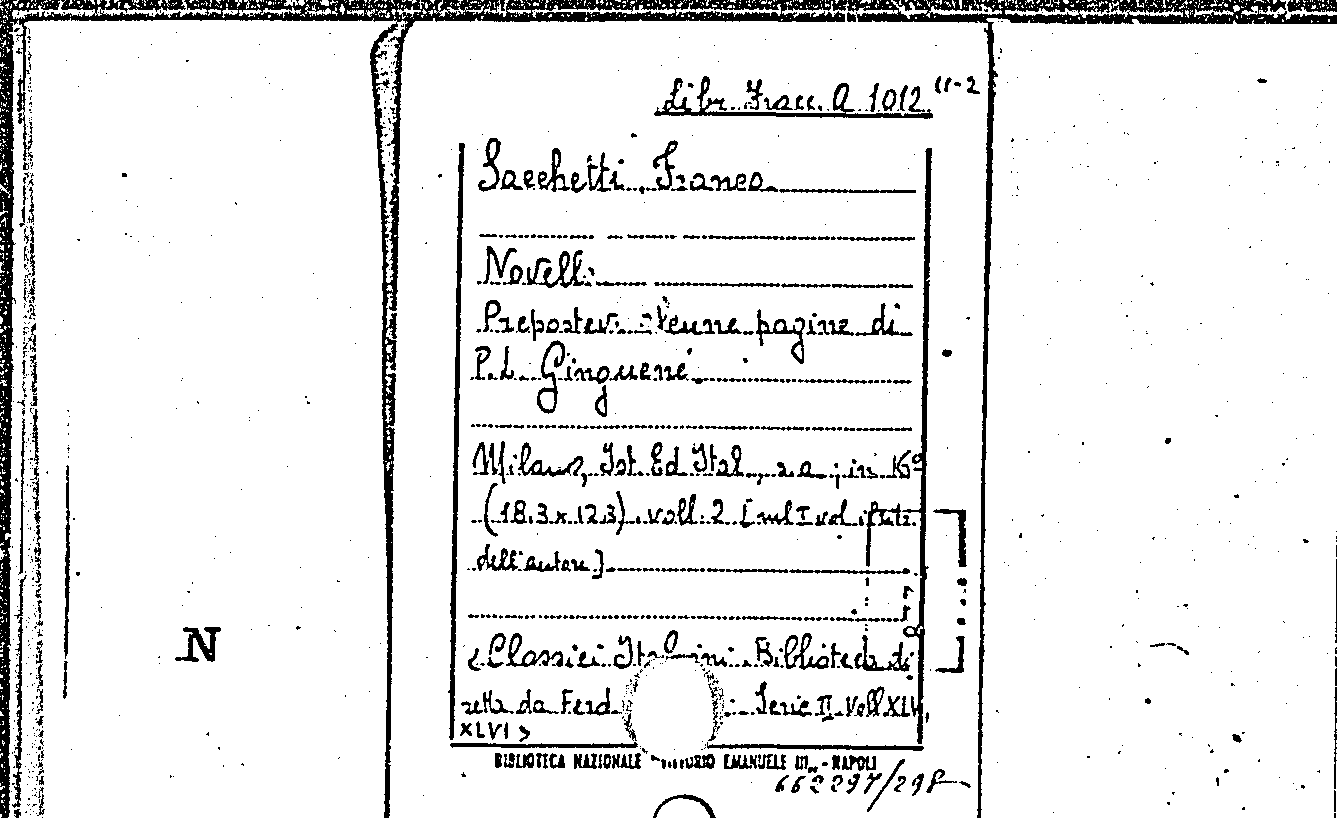 Libr. Fracc. A 1012 (1-2
Sacchetti, Franco
Novelle
Prepostevi alcune pagine di
P. L. Ginguené
Milano, Ist. Ed. Ital., s.a.; in 16º
(18,3 x 12,3), voll. 2 [nel I vol.
dell'autore]
<Classici Italiani. Biblioteca di
retta da Ferd : Serie II. Voll. XLV,
XLVI>
BIBLIOTECA NAZIONALE VITTORIO EMANUELE III - NAPOLI
662297/298
N